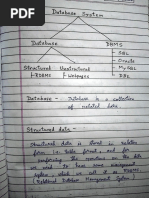 Database System
Database
DBMS
- SQL
- Oracle
Structured
Unstructured
- MySQL
- RDBMS
- Webpages
Database - Database is a collection
of related data.
Structured data -
Structured data is stored in relation
format i.e. table format, and for
performing the operations on the data
we need to have some management
system which we call it as RDBMS
(Relational Database Management System)